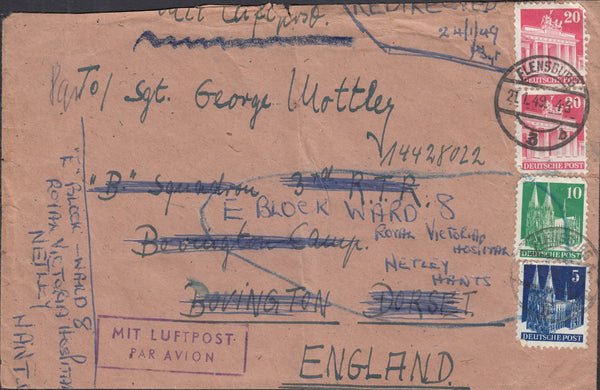 Mit Luftpost.
REDIRECTED
24/1/49
20
DEUTSCHE POST
FLENSBURG
21.1.49
a b
20
DEUTSCHE POST
10
DEUTSCHE POST
5
DEUTSCHE POST
Sgt. George Mottley
14428022
"B" Squadron 3rd R.T.R.
E BLOCK WARD 8
Bovington Camp.
ROYAL VICTORIA
HOSPITAL
NETLEY
HANTS
BOVINGTON DORSET
ENGLAND
MIT LUFTPOST
PAR AVION
E BLOCK - WARD 8
ROYAL VICTORIA HOSPITAL
NETLEY
HANTS